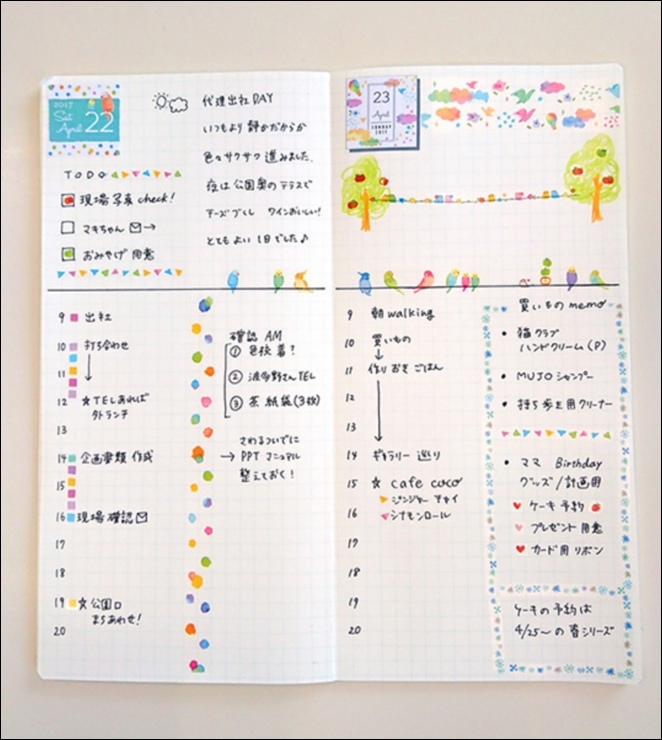 2017
Sat
April 22
代理出社DAY
いつもより静かだからか
色々サクサク進みました.
夜は公園奥のテラスで
チーズづくし ワインおいしい!
とてもよい1日でした♪
TODO
現場写真check!
マキちゃん ✉→
おみやげ用意
9 出社
10 打ち合わせ
11
12 ☆TELあれば
外ランチ
13
14 企画書類作成
15
16 現場確認✉
17
18
19 ☆公園口
まちあわせ!
20
確認 AM
① 色校着?
② 波多野さんTEL
③ 茶紙袋(3枚)
さわるついでに
→ PPTマニュアル
整えておく!
23
April
SUNDAY
2017
9 朝walking
10 買いもの
↓
11 作りおきごはん
12
13
14 ギャラリー巡り
15 ☆ cafe coco
ジンジャーチャイ
シナモンロール
16
17
18
19
20
買いものmemo
• 猫クラブ
ハンドクリーム(P)
• MUJOシャンプー
• 持ち歩き用クリーナー
• ママ Birthday
グッズ/計画用
♥ ケーキ予約
♥ プレゼント用意
♥ カード用リボン
ケーキの予約は
4/25〜の春シリーズ